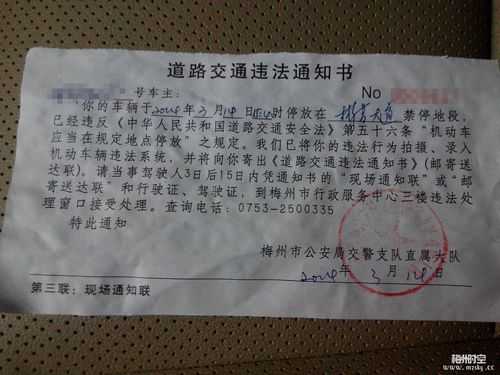 道路交通违法通知书
号车主： No
你的车辆于2014年3月14日 时停放在 禁停地段，
已经违反《中华人民共和国道路交通安全法》第五十六条“机动车
应当在规定地点停放”之规定。我们已将你的违法行为拍摄、录入
机动车辆违法系统，并将向你寄出《道路交通违法通知书》（邮寄送
达联）。请当事驾驶人3日后15日内凭通知书的“现场通知联”或“邮
寄送达联”和行驶证、驾驶证，到梅州市行政服务中心三楼违法处
理窗口接受处理。查询电话：0753-2500335
特此通知
梅州市公安局交警支队直属大队
2014年3月14日
第三联：现场通知联
梅州时空
www.mzsky.cc